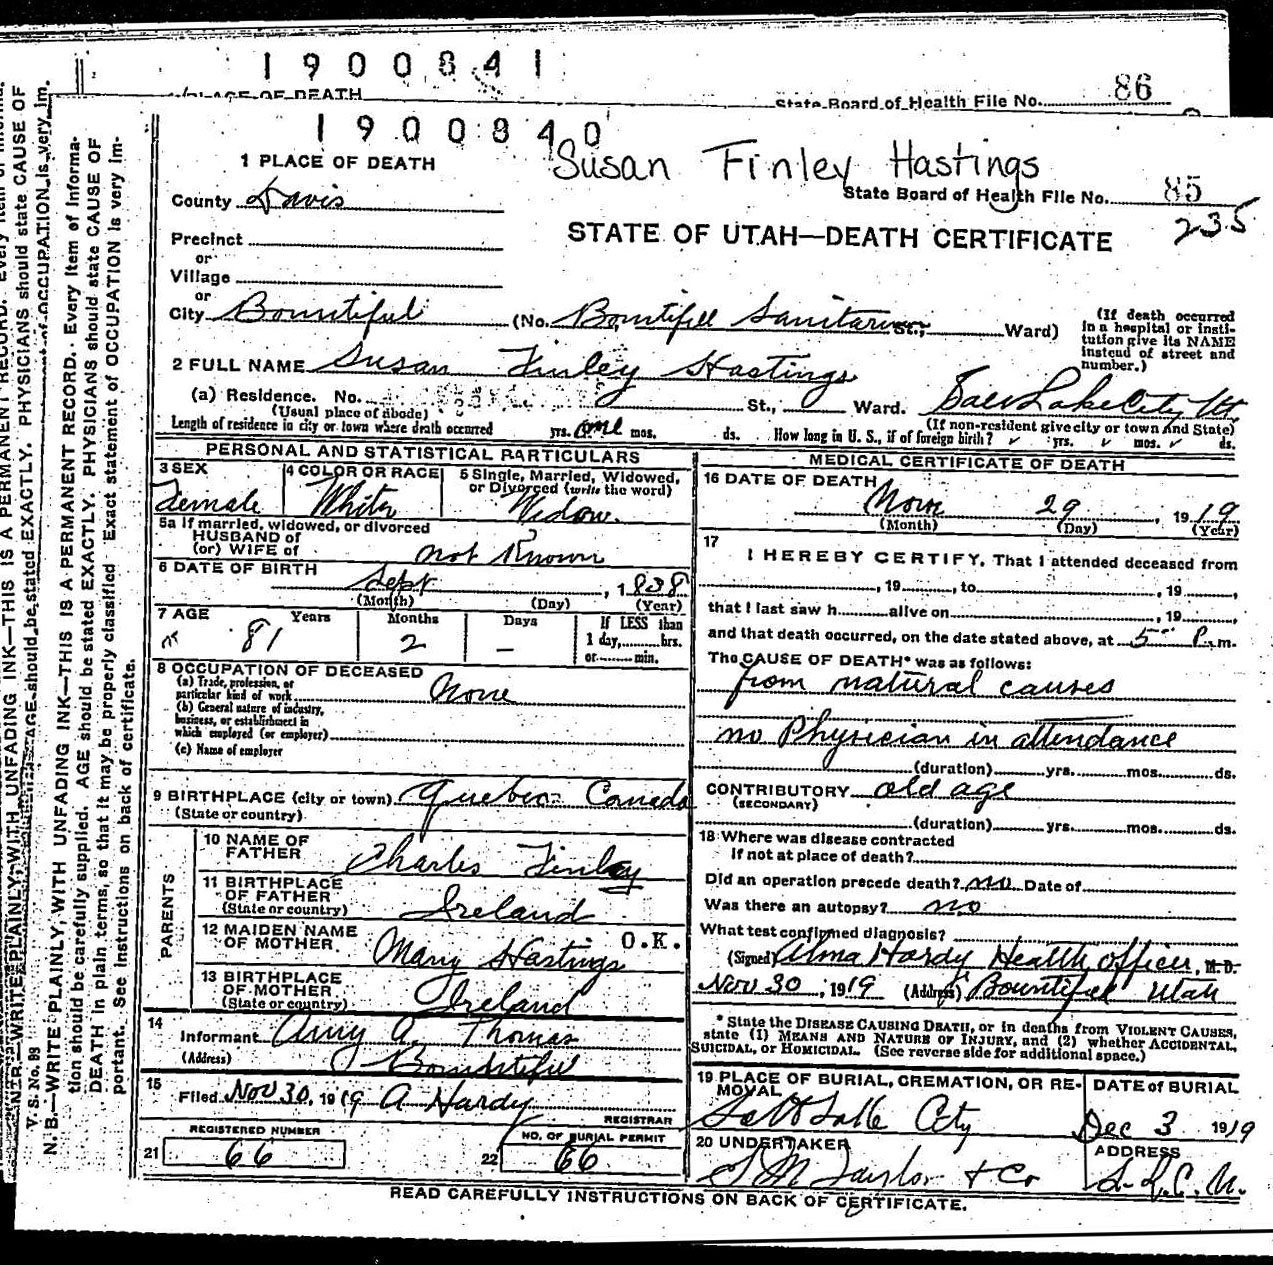 1900841
PLACE OF DEATH
State Board of Health File No. 86
1900840
Susan Finley Hastings
1 PLACE OF DEATH
State Board of Health File No. 85
235
County Davis
STATE OF UTAH—DEATH CERTIFICATE
Precinct
or
Village
or
City Bountiful (No. Bountifull Sanitarium St., Ward)
(If death occurred in a hospital or institution give its NAME instead of street and number.)
2 FULL NAME Susan Finley Hastings
(a) Residence. No. St., Ward. Salt Lake City, Ut.
(Usual place of abode) (If non-resident give city or town and State)
Length of residence in city or town where death occurred yrs. one mos. ds. How long in U. S., if of foreign birth? yrs. mos. ds.
PERSONAL AND STATISTICAL PARTICULARS
3 SEX Female
4 COLOR OR RACE White
5 Single, Married, Widowed, or Divorced (write the word) Widow.
5a If married, widowed, or divorced
HUSBAND of
(or) WIFE of not Known
6 DATE OF BIRTH Sept , 1838
(Month) (Day) (Year)
7 AGE Years 81 Months 2 Days –
If LESS than 1 day, hrs. or min.
8 OCCUPATION OF DECEASED
(a) Trade, profession, or particular kind of work None
(b) General nature of industry, business, or establishment in which employed (or employer)
(c) Name of employer
9 BIRTHPLACE (city or town) Quebec Canada
(State or country)
PARENTS
10 NAME OF FATHER Charles Finley
11 BIRTHPLACE OF FATHER (State or country) Ireland
12 MAIDEN NAME OF MOTHER Mary Hastings O.K.
13 BIRTHPLACE OF MOTHER (State or country) Ireland
14
Informant Amy A. Thomas
(Address) Bountiful
15
Filed Nov 30, 1919 A Hardy
REGISTRAR
REGISTERED NUMBER
21 66
NO. OF BURIAL PERMIT
22 66
MEDICAL CERTIFICATE OF DEATH
16 DATE OF DEATH
Nov 29, 1919
(Month) (Day) (Year)
17
I HEREBY CERTIFY, That I attended deceased from
, 19 , to , 19 ,
that I last saw h alive on , 19 ,
and that death occurred, on the date stated above, at 5 P. m.
The CAUSE OF DEATH* was as follows:
from natural causes
no Physician in attendance
(duration) yrs. mos. ds.
CONTRIBUTORY old age
(SECONDARY)
(duration) yrs. mos. ds.
18 Where was disease contracted
If not at place of death?
Did an operation precede death? no Date of
Was there an autopsy? no
What test confirmed diagnosis?
(Signed) Alma Hardy Health officer, M.D.
Nov 30, 1919 (Address) Bountiful Utah
* State the DISEASE CAUSING DEATH, or in deaths from VIOLENT CAUSES,
state (1) MEANS AND NATURE OF INJURY, and (2) whether ACCIDENTAL,
SUICIDAL, or HOMICIDAL. (See reverse side for additional space.)
19 PLACE OF BURIAL, CREMATION, OR REMOVAL
Salt Lake City
DATE of BURIAL
Dec 3 1919
20 UNDERTAKER
S M Taylor & Co
ADDRESS
S. L. C. U.
READ CAREFULLY INSTRUCTIONS ON BACK OF CERTIFICATE.
V S. No. B9
N. B.—WRITE PLAINLY, WITH UNFADING INK—THIS IS A PERMANENT RECORD. Every item of informa-
tion should be carefully supplied. AGE should be stated EXACTLY. PHYSICIANS should state CAUSE OF
DEATH in plain terms, so that it may be properly classified. Exact statement of OCCUPATION is very im-
portant. See instructions on back of certificate.